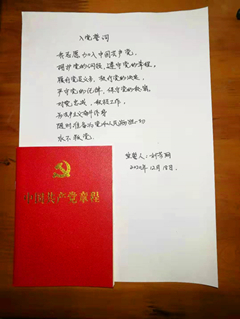 入党誓词
我志愿加入中国共产党,
拥护党的纲领,遵守党的章程,
履行党员义务,执行党的决定,
严守党的纪律,保守党的秘密,
对党忠诚,积极工作,
为共产主义奋斗终身
随时准备为党和人民牺牲一切
永不叛党。
宣誓人:
2020年12月18日.
中国共产党章程